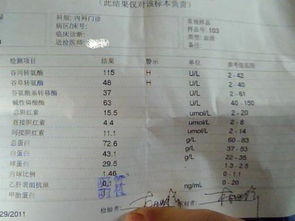 （此结果仅对该标本负责）
科别: 内科门诊
病区/床号:
临床诊断:
送检医师:
样品号: 103
检测项目 结果 警示 单位 参考值范围
谷丙转氨酶 115 H U/L 2 - 42
谷草转氨酶 48 H U/L 2 - 40
U/L 2 - 60
碱性磷酸酶 63 U/L 40 - 150
总胆红素 15.5 umol/L 2 - 20
直接胆红素 4.4 umol/L 0 - 8
间接胆红素 11.1 umol/L 2 - 14
总蛋白 72.6 g/L 60 - 83
白蛋白 43.1 g/L 37 - 53
球蛋白 29.5 g/L 22 - 35
白球比例 1.46 1.3 - 2.5
乙肝表面抗原
甲胎蛋白 ng/mL 0 - 20
29/2011 检验者: